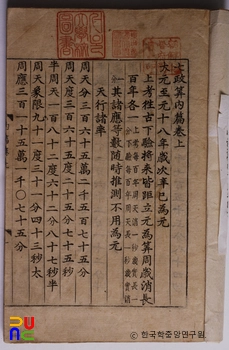 七政算內篇卷上
次元至元十八年歲次辛巳爲元
上考往古下驗將來皆距立元爲算周歲消長
百年各一
其諸應等數隨時推測不用爲元
天行諸率
周天分三百六十五萬二千五百七十五分
周天度三百六十五度二十五分七十五秒
半周天一百八十二度六十二分八十七秒半
周天象限九十一度三十一分四十三秒太
周應三百一十五萬一千〇七十五分
ⓒ 한국학중앙연구원